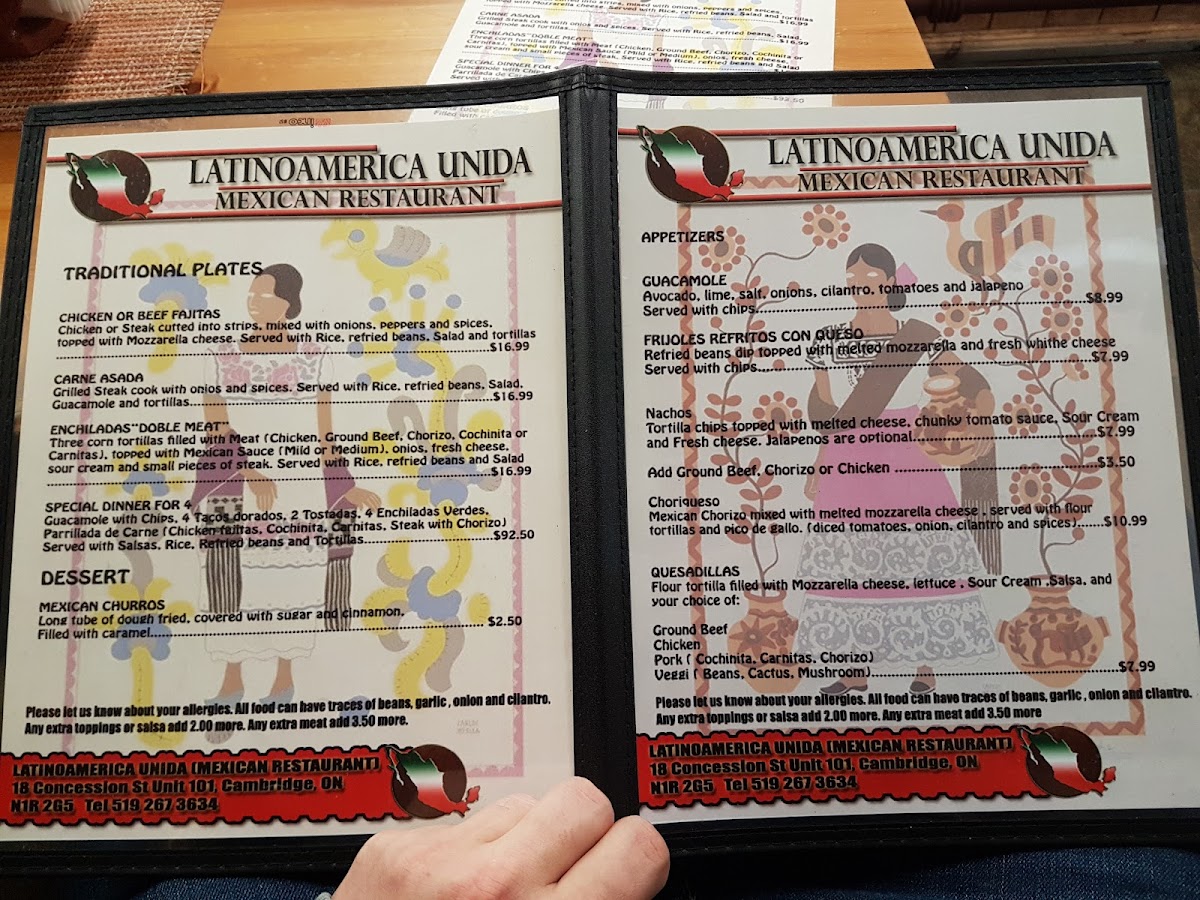 topped with Mozzarella cheese. Served with Rice, refried beans, Salad and tortillas
$16.99
CARNE ASADA
Grilled Steak cook with onios and spices. Served with Rice, refried beans, Salad,
Guacamole and tortillas............$16.99
ENCHILADAS"DOBLE MEAT"
Three corn tortillas filled with Meat (Chicken, Ground Beef, Chorizo, Cochinita or
Carnitas), topped with Mexican Sauce (Mild or Medium), onios, fresh cheese,
sour cream and small pieces of steak. Served with Rice, refried beans and Salad
SPECIAL DINNER FOR 4
Guacamole with Chips
Parrillada de Carne
Served with
$92.50
LATINOAMERICA UNIDA
MEXICAN RESTAURANT
TRADITIONAL PLATES
CHICKEN OR BEEF FAJITAS
Chicken or Steak cutted into strips, mixed with onions, peppers and spices,
topped with Mozzarella cheese. Served with Rice, refried beans, Salad and tortillas
............$16.99
CARNE ASADA
Grilled Steak cook with onios and spices. Served with Rice, refried beans, Salad,
Guacamole and tortillas............$16.99
ENCHILADAS"DOBLE MEAT"
Three corn tortillas filled with Meat (Chicken, Ground Beef, Chorizo, Cochinita or
Carnitas), topped with Mexican Sauce (Mild or Medium), onios, fresh cheese,
sour cream and small pieces of steak. Served with Rice, refried beans and Salad
............$16.99
SPECIAL DINNER FOR 4
Guacamole with Chips, 4 Tacos dorados, 2 Tostadas, 4 Enchiladas Verdes,
Parrillada de Carne (Chicken fujitas, Cochinita, Carnitas, Steak with Chorizo)
Served with Salsas, Rice, Refried beans and Tortillas............$92.50
DESSERT
MEXICAN CHURROS
Long tube of dough fried, covered with sugar and cinnamon,
Filled with caramel............ $2.50
Please let us know about your allergies. All food can have traces of beans, garlic , onion and cilantro.
Any extra toppings or salsa add 2.00 more. Any extra meat add 3.50 more.
LATINOAMERICA UNIDA (MEXICAN RESTAURANT)
18 Concession St Unit 101, Cambridge, ON
N1R 2G5 Tel 519 267 3634
LATINOAMERICA UNIDA
MEXICAN RESTAURANT
APPETIZERS
GUACAMOLE
Avocado, lime, salt, onions, cilantro, tomatoes and jalapeno
Served with chips............$8.99
FRIJOLES REFRITOS CON QUESO
Refried beans dip topped with melted mozzarella and fresh whithe cheese
Served with chips............$7.99
Nachos
Tortilla chips topped with melted cheese, chunky tomato sauce, Sour Cream
and Fresh cheese. Jalapenos are optional............$7.99
Add Ground Beef, Chorizo or Chicken ............$3.50
Choriqueso
Mexican Chorizo mixed with melted mozzarella cheese , served with flour
tortillas and pico de gallo. (diced tomatoes, onion, cilantro and spices)......$10.99
QUESADILLAS
Flour tortilla filled with Mozzarella cheese, lettuce , Sour Cream ,Salsa, and
your choice of:
Ground Beef
Chicken
Pork ( Cochinita, Carnitas, Chorizo)
Veggi ( Beans, Cactus, Mushroom)............$7.99
Please let us know about your allergies. All food can have traces of beans, garlic , onion and cilantro.
Any extra toppings or salsa add 2.00 more. Any extra meat add 3.50 more
LATINOAMERICA UNIDA (MEXICAN RESTAURANT)
18 Concession St Unit 101, Cambridge, ON
N1R 2G5 Tel 519 267 3634